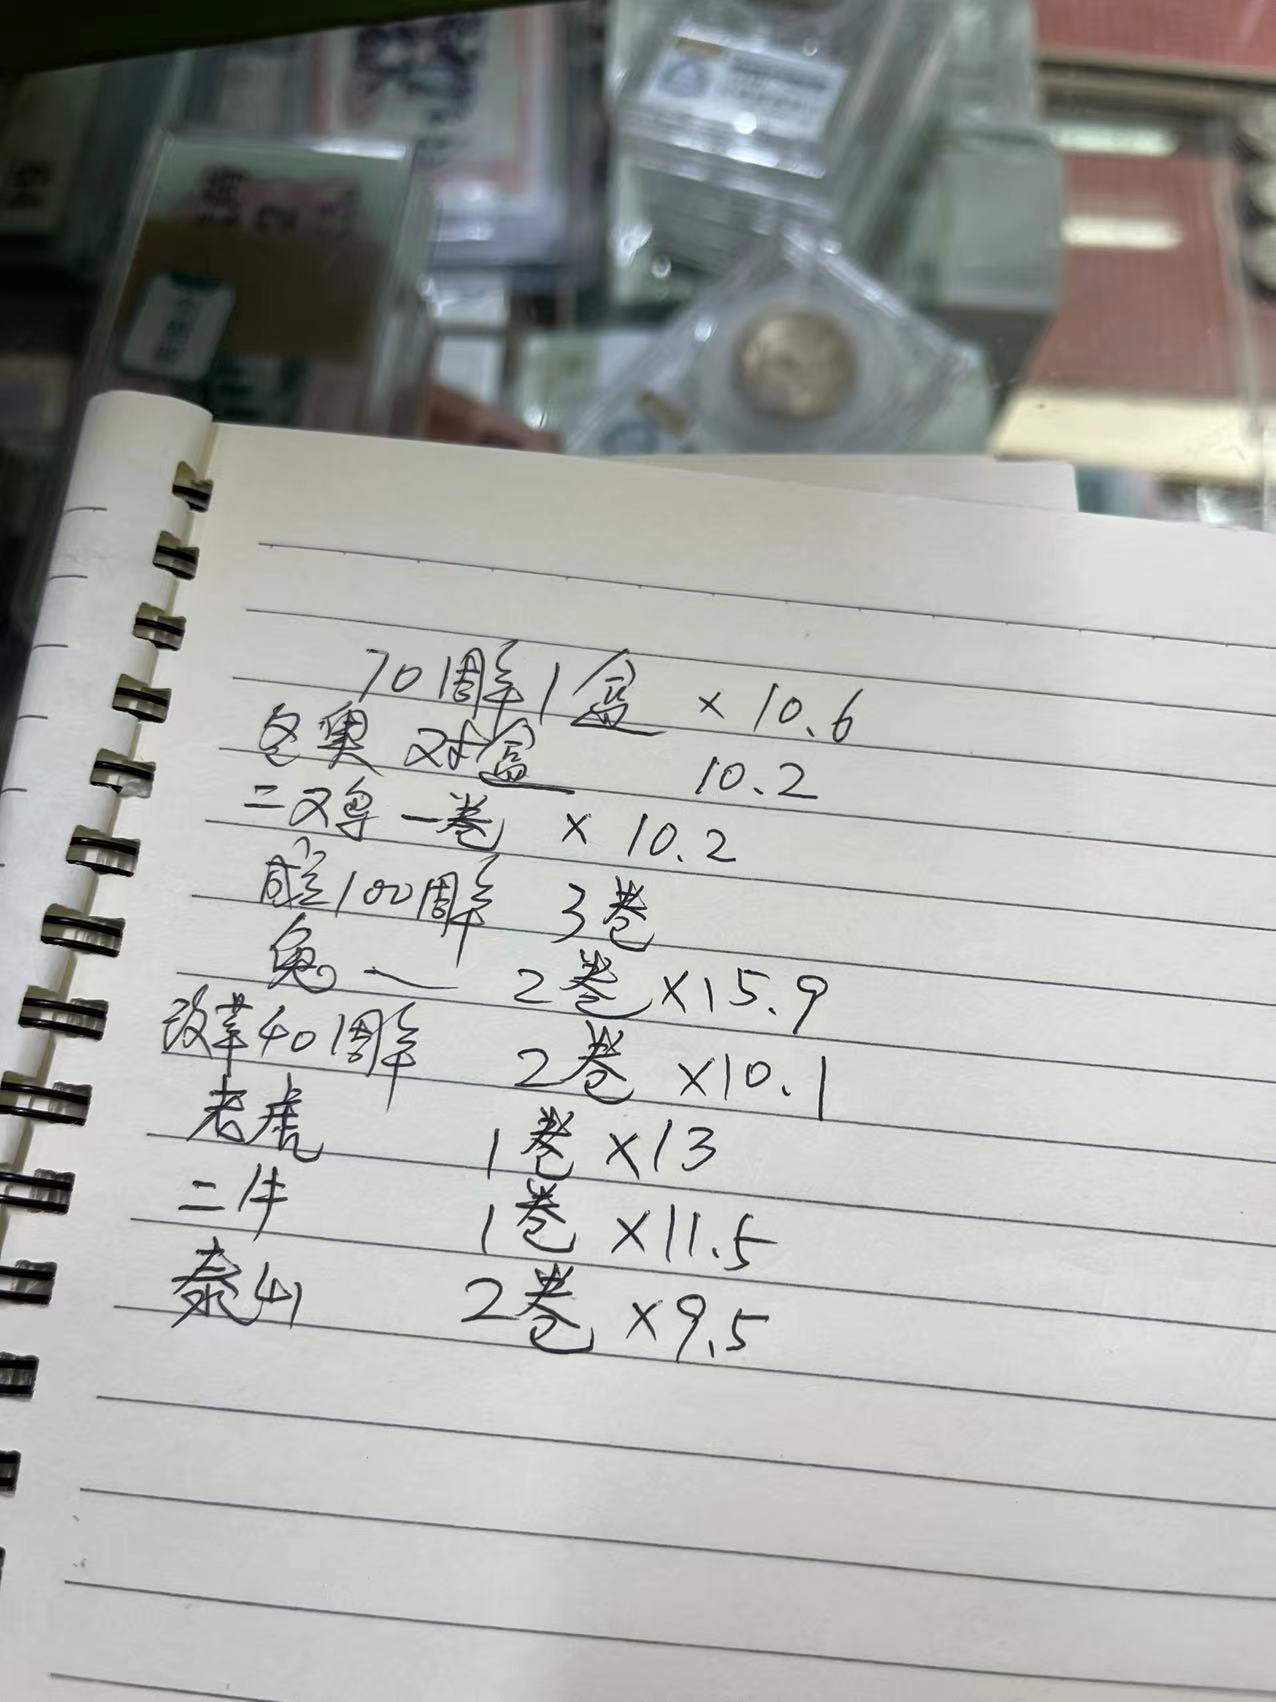 70周年1盒 × 10.6
冬奥 对盒 10.2
二又鸟一卷 × 10.2
成立100周年 3卷
兔 2卷 ×15.9
改革40周年 2卷 ×10.1
老虎 1卷 ×13
二牛 1卷 ×11.5
泰山 2卷 ×9.5